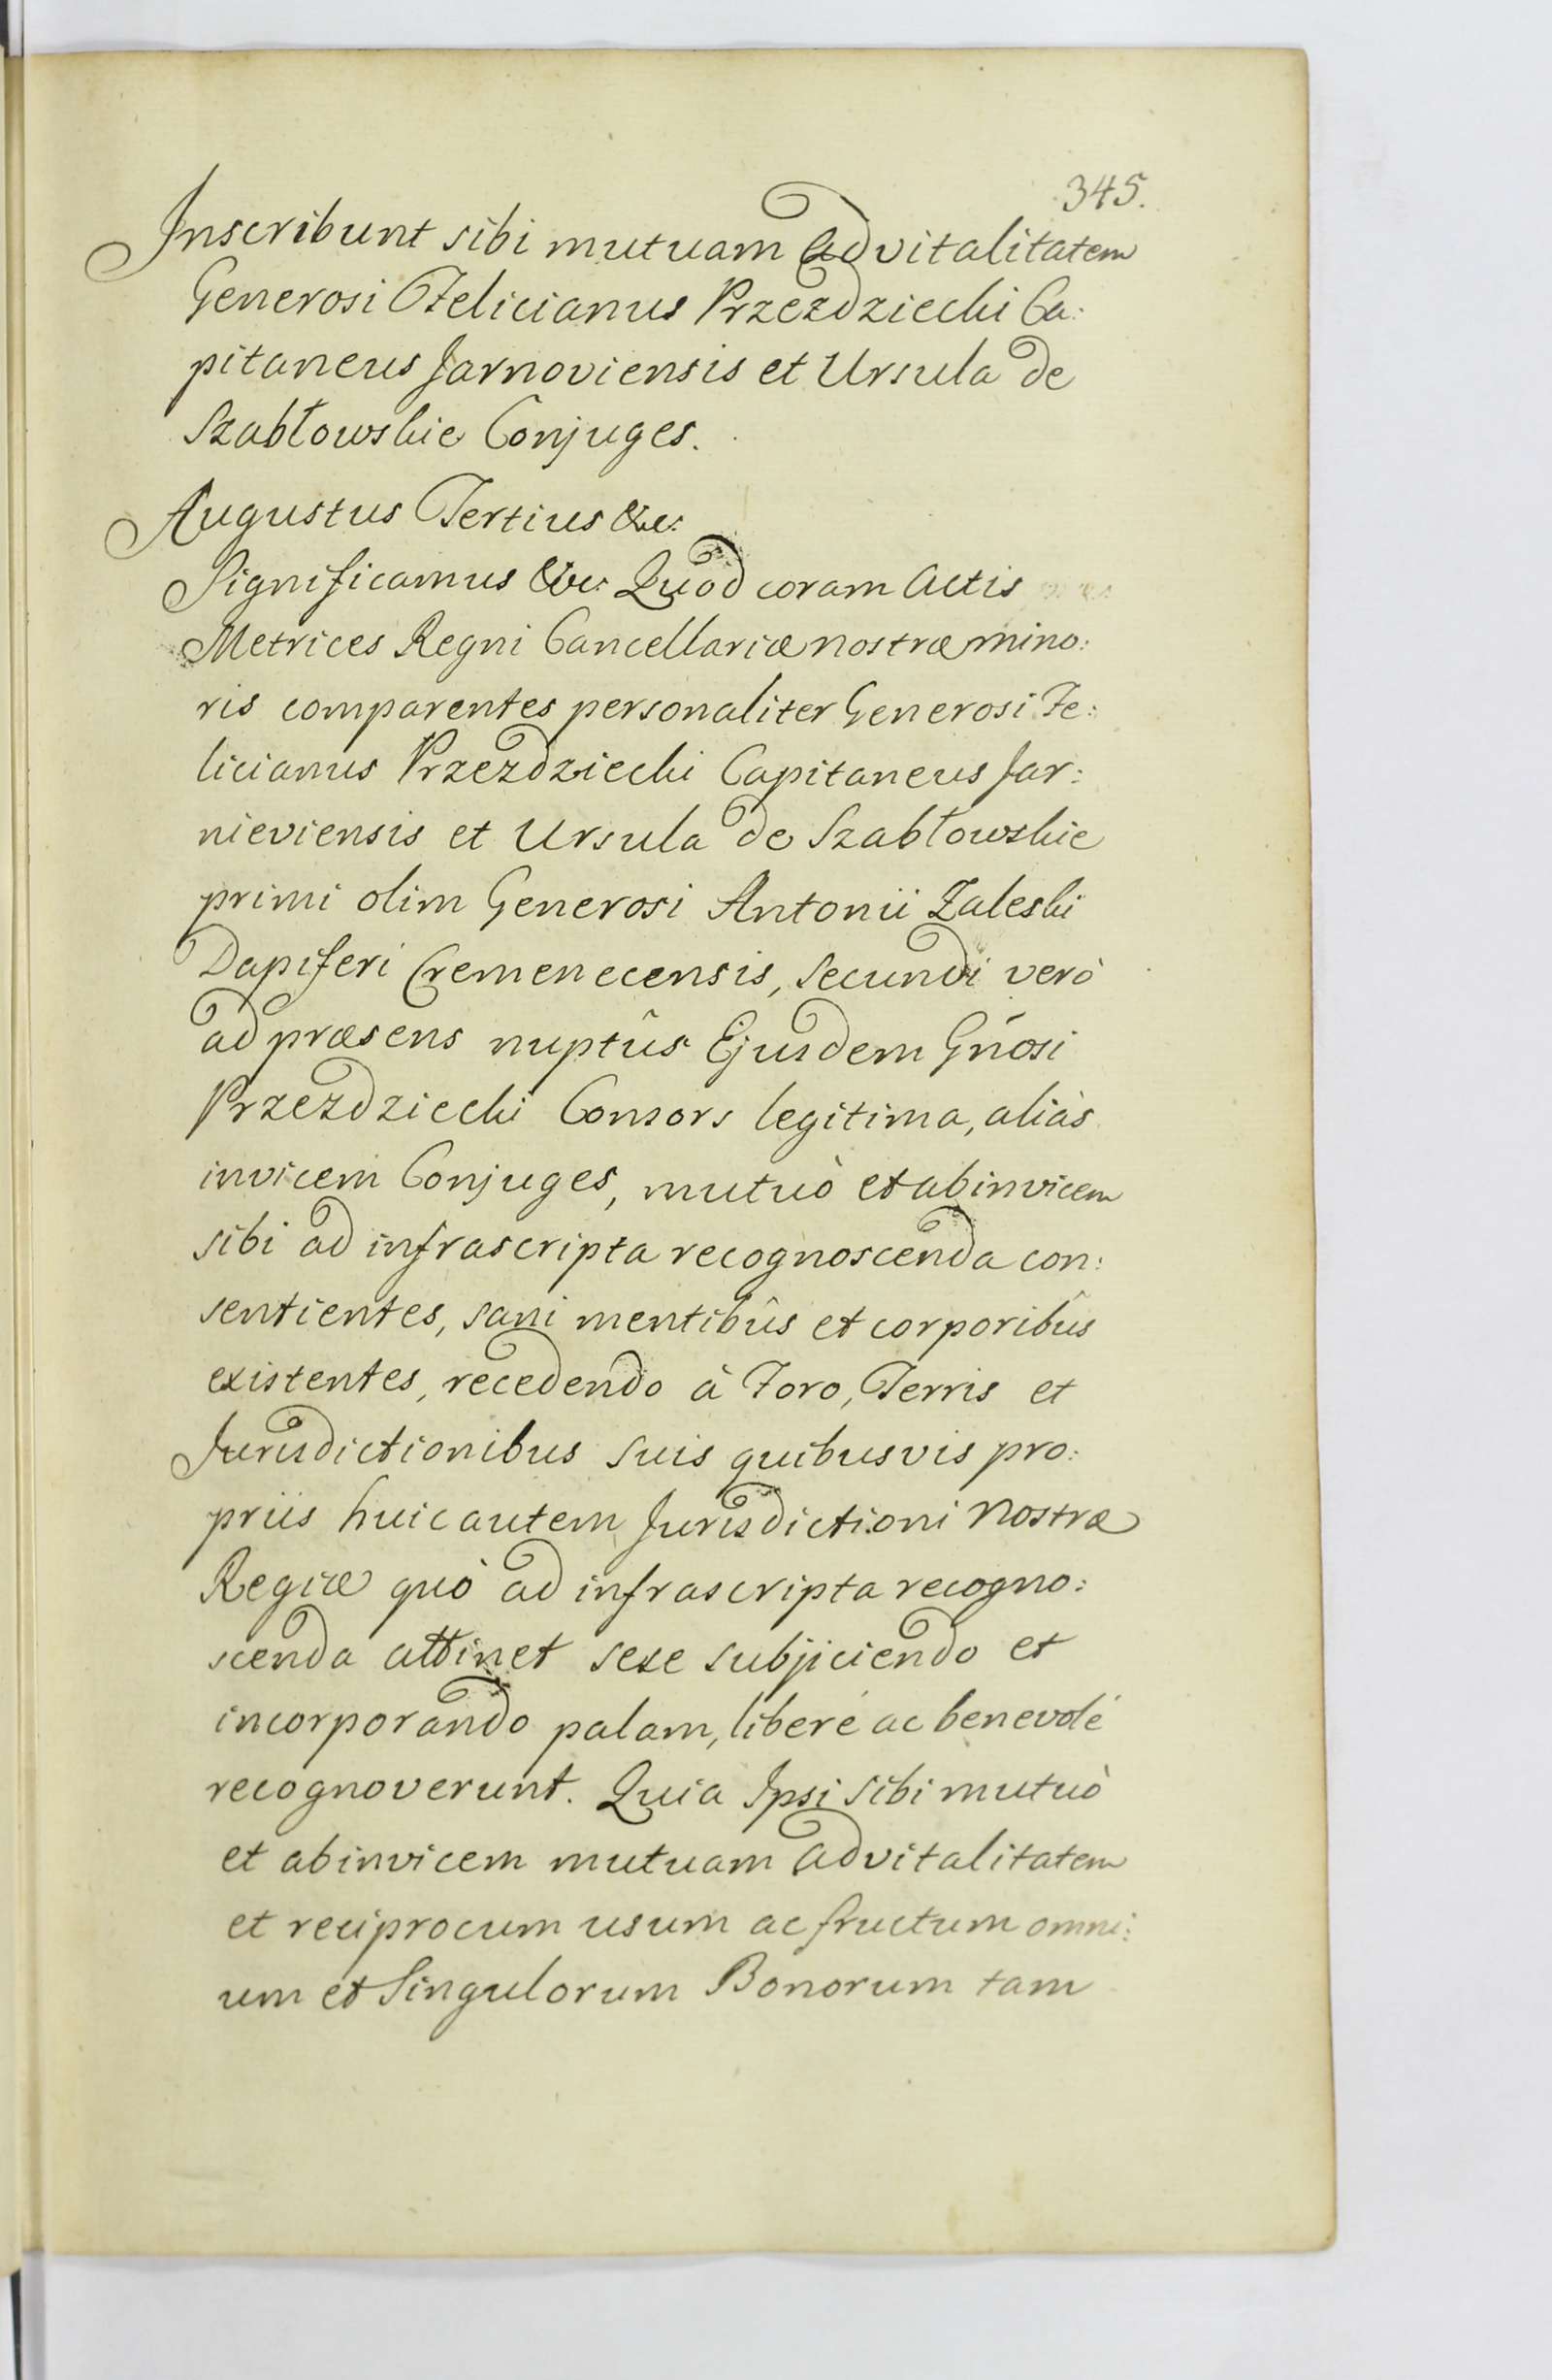 345.
Inscribunt sibi mutuam advitalitatem
Generosi Felicianus Przezdziecki Ca:
pitaneus Jarnoviensis et Ursula de
Szabłowskie Conjuges.
Augustus Tertius &c:
Significamus &c: Quòd coram Actis
Metrices Regni Cancellariæ nostræ mino:
ris comparentes personaliter Generosi Fe:
licianus Przezdziecki Capitaneus Jar:
nieviensis et Ursula de Szabłowskie
primi olim Generosi Antonii Zaleski
Dapiferi Cremenecensis, secundi verò
ad præsens nuptûs Ejusdem Gñosi
Przezdziecki Consors legitima, aliàs
invicem Conjuges, mutuò et abinvicem
sibi ad infrascripta recognoscenda con:
sentientes, sani mentibûs et corporibûs
existentes, recedendo à Foro, Terris et
Jurisdictionibus suis quibusvis pro:
priis huic autem Jurisdictioni nostræ
Regiæ quò ad infrascripta recogno:
scenda attinet sese subjiciendo et
incorporando palam, liberé ac benevolé
recognoverunt. Quia Ipsi sibi mutuò
et abinvicem mutuam advitalitatem
et reciprocum usum ac fructum omni:
um et Singulorum Bonorum tam